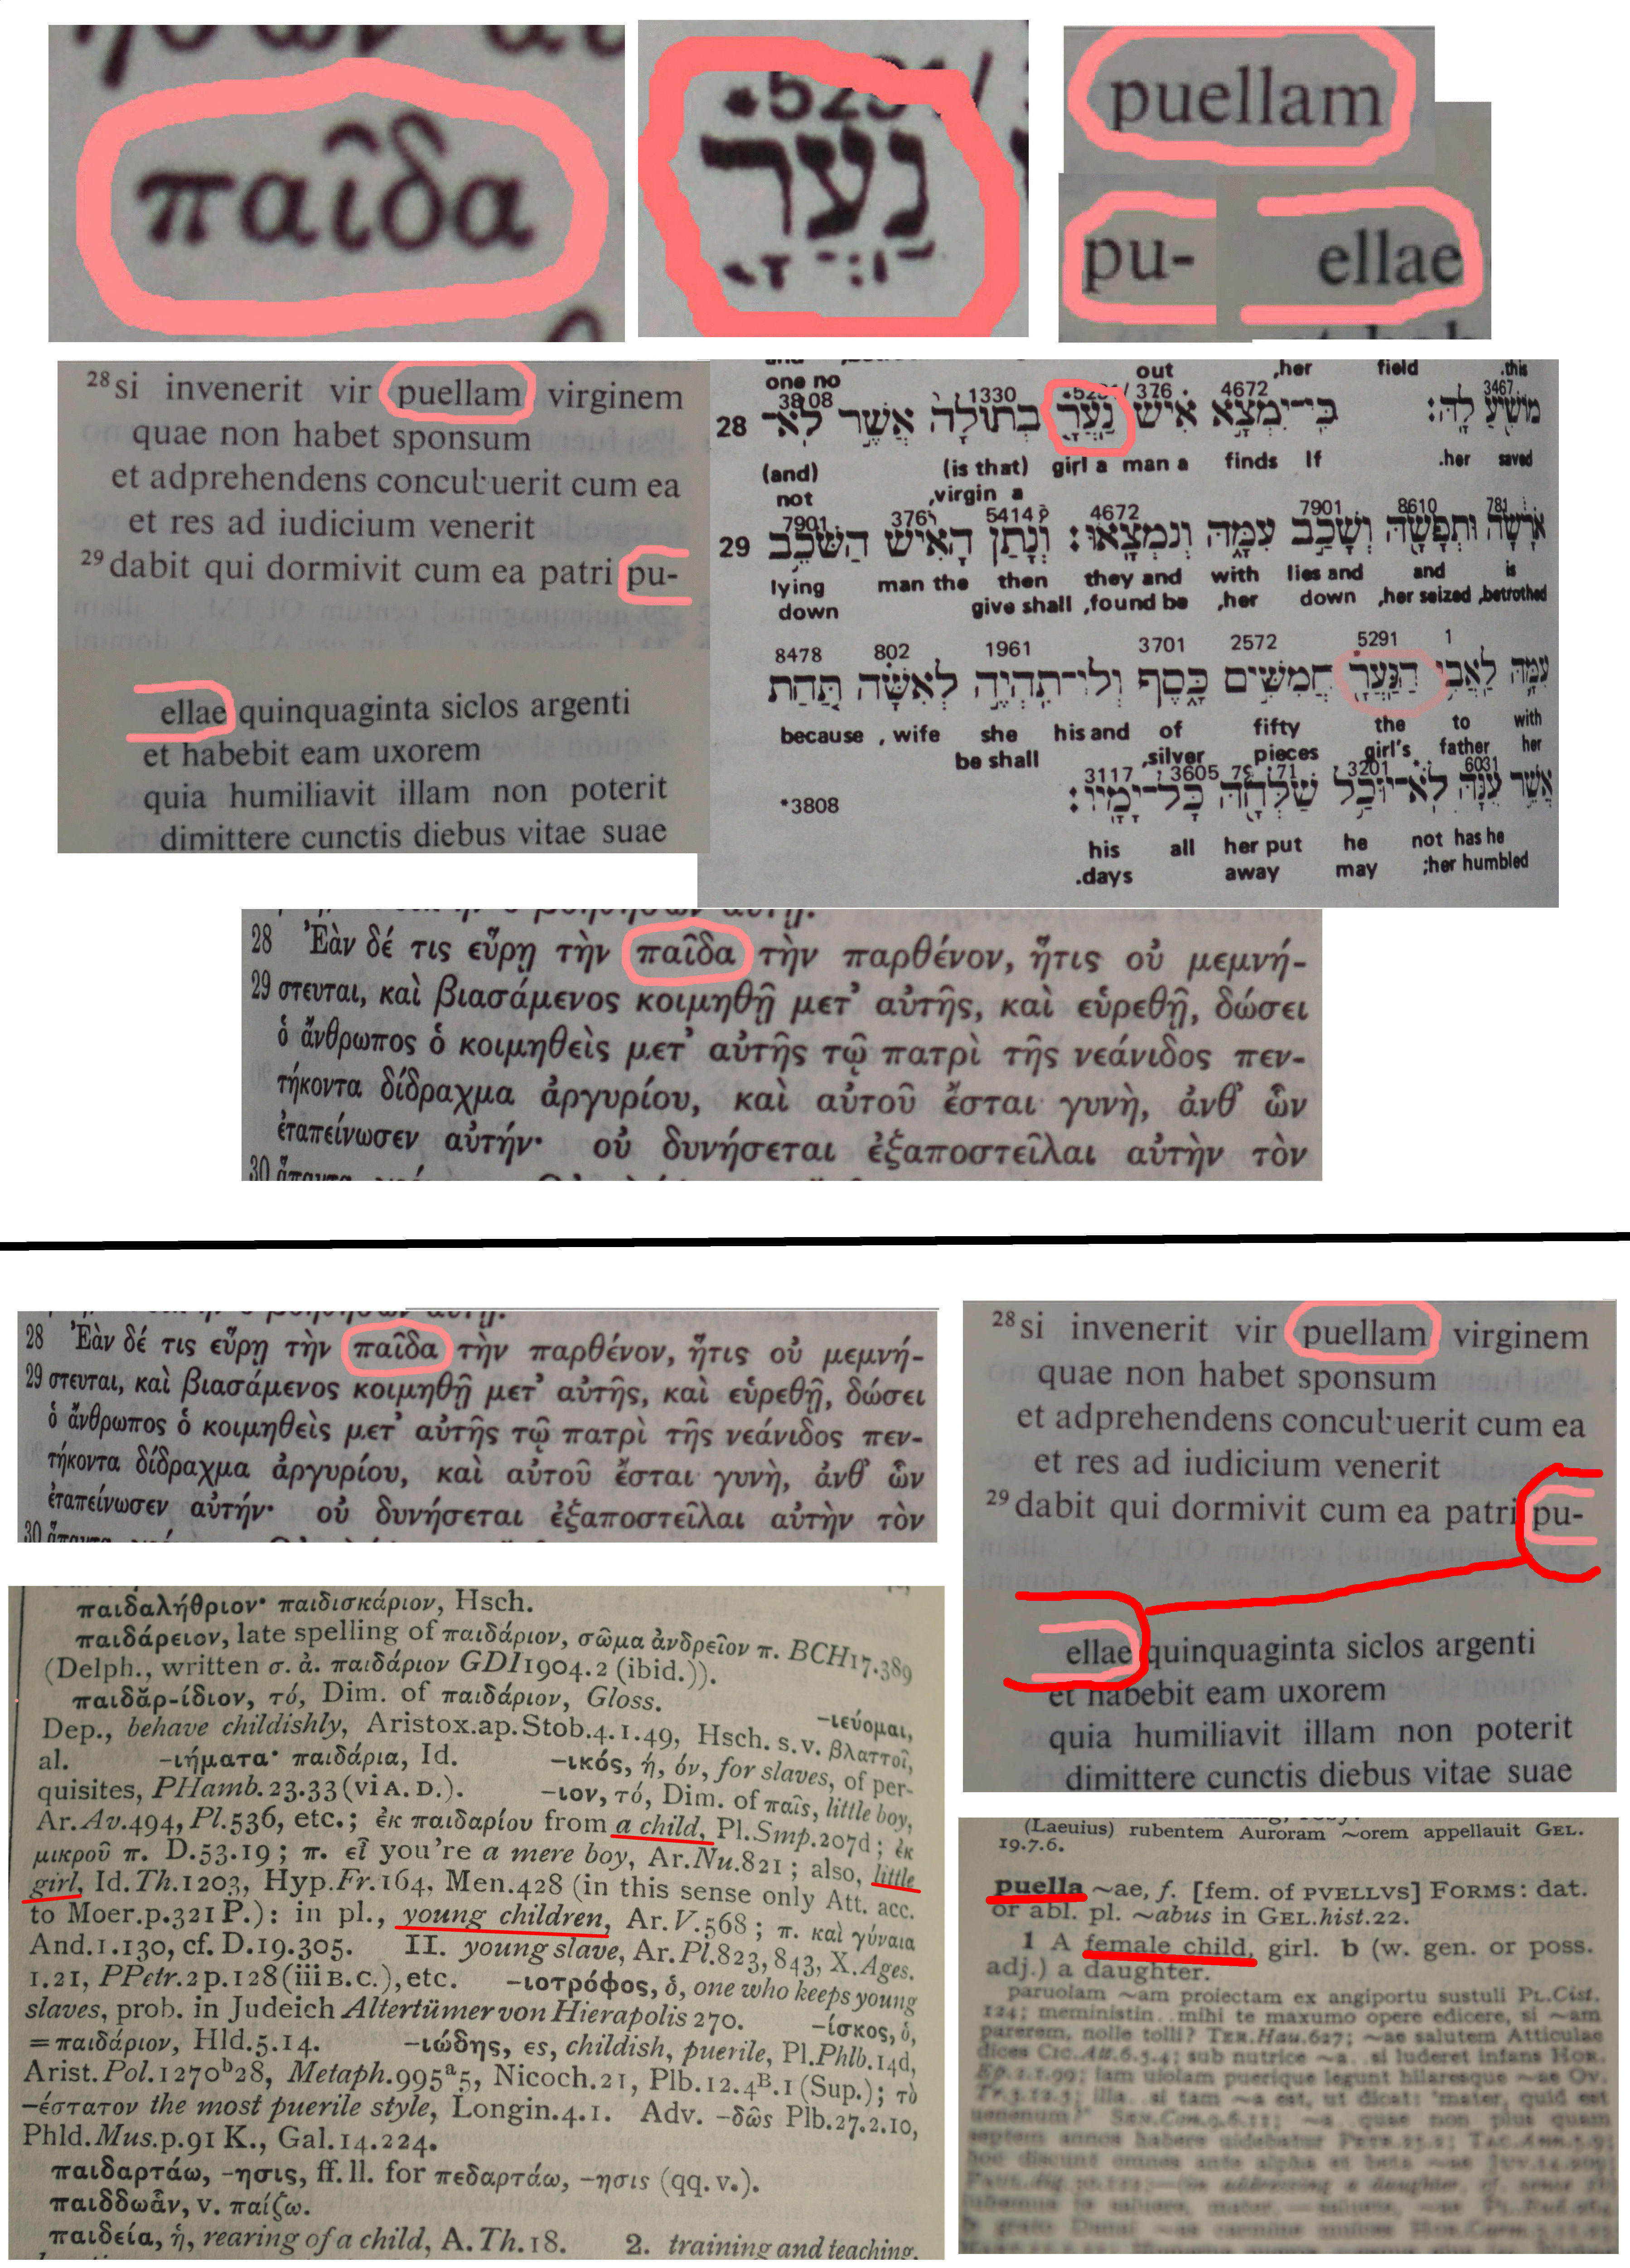 παῖδα
נַעֲרָ
puellam
pu-
ellae
28 si invenerit vir puellam virginem
quae non habet sponsum
et adprehendens concubuerit cum ea
et res ad iudicium venerit
29 dabit qui dormivit cum ea patri pu-
ellae quinquaginta siclos argenti
et habebit eam uxorem
quia humiliavit illam non poterit
dimittere cunctis diebus vitae suae
out ,her field .this
one no
3808 1330 376 4672 3467
28 מוֹשִׁיעַ לָהּ׃ כִּי־יִמְצָא אִישׁ נַעֲרָ בְתוּלָה אֲשֶׁר לֹא־
(and) (is that) girl a man a finds If .her saved
not ,virgin a
7901 376 5414 4672 7901 8610 781
29 אֹרָשָׂה וּתְפָשָׂהּ וְשָׁכַב עִמָּהּ וְנִמְצָאוּ׃ וְנָתַן הָאִישׁ הַשֹּׁכֵב
lying man the then they and with lies and and is
down give shall ,found be ,her down ,her seized ,betrothed
8478 802 1961 3701 2572 5291 1
עִמָּהּ לַאֲבִי הַנַּעֲרָ חֲמִשִּׁים כָּסֶף וְלוֹ־תִהְיֶה לְאִשָּׁה תַּחַת
because , wife she his and of fifty the to with
be shall ,silver pieces girl's father her
3117 3605 7971 3201 6031
*3808 אֲשֶׁר עִנָּהּ לֹא־יוּכַל שַׁלְּחָהּ כָּל־יָמָיו׃
his all her put he not has he
.days away may ;her humbled
28 Ἐὰν δέ τις εὕρῃ τὴν παῖδα τὴν παρθένον, ἥτις οὐ μεμνή-
29 στευται, καὶ βιασάμενος κοιμηθῇ μετ' αὐτῆς, καὶ εὑρεθῇ, δώσει
ὁ ἄνθρωπος ὁ κοιμηθεὶς μετ' αὐτῆς τῷ πατρὶ τῆς νεάνιδος πεν-
τήκοντα δίδραχμα ἀργυρίου, καὶ αὐτοῦ ἔσται γυνὴ, ἀνθ' ὧν
ἐταπείνωσεν αὐτήν· οὐ δυνήσεται ἐξαποστεῖλαι αὐτὴν τὸν
30
28 Ἐὰν δέ τις εὕρῃ τὴν παῖδα τὴν παρθένον, ἥτις οὐ μεμνή-
29 στευται, καὶ βιασάμενος κοιμηθῇ μετ' αὐτῆς, καὶ εὑρεθῇ, δώσει
ὁ ἄνθρωπος ὁ κοιμηθεὶς μετ' αὐτῆς τῷ πατρὶ τῆς νεάνιδος πεν-
τήκοντα δίδραχμα ἀργυρίου, καὶ αὐτοῦ ἔσται γυνὴ, ἀνθ' ὧν
ἐταπείνωσεν αὐτήν· οὐ δυνήσεται ἐξαποστεῖλαι αὐτὴν τὸν
30
παιδαλήθριον· παιδισκάριον, Hsch.
παιδάρειον, late spelling of παιδάριον, σῶμα ἀνδρεῖον π. BCH17.389
(Delph., written σ. ἀ. παιδάριον GDI1904.2 (ibid.)).
παιδᾰρ-ίδιον, τό, Dim. of παιδάριον, Gloss. -ιεύομαι,
Dep., behave childishly, Aristox.ap.Stob.4.1.49, Hsch. s.v. βλαττοῖ,
al. -ιήματα· παιδάρια, Id. -ικός, ή, όν, for slaves, of per-
quisites, PHamb.23.33 (vi A.D.). -ιον, τό, Dim. of παῖς, little boy,
Ar.Av.494, Pl.536, etc.; ἐκ παιδαρίου from a child, Pl.Smp.207d; ἐκ
μικροῦ π. D.53.19; π. εἶ you're a mere boy, Ar.Nu.821; also, little
girl, Id.Th.1203, Hyp.Fr.164, Men.428 (in this sense only Att. acc.
to Moer.p.321 P.): in pl., young children, Ar.V.568; π. καὶ γύναια
And.1.130, cf. D.19.305. II. young slave, Ar.Pl.823, 843, X.Ages.
1.21, PPetr.2p.128 (iii B.C.), etc. -ιοτρόφος, ὁ, one who keeps young
slaves, prob. in Judeich Altertümer von Hierapolis 270. -ίσκος, ὁ,
=παιδάριον, Hld.5.14. -ιώδης, ες, childish, puerile, Pl.Phlb.14d,
Arist.Pol.1270ᵇ28, Metaph.995ᵃ5, Nicoch.21, Plb.12.4ᴮ.1 (Sup.); τὸ
-έστατον the most puerile style, Longin.4.1. Adv. -δῶς Plb.27.2.10,
Phld.Mus.p.91 K., Gal.14.224.
παιδαρτάω, -ησις, ff. ll. for πεδαρτάω, -ησις (qq. v.).
παιδδωἄν, v. παίζω.
παιδεία, ἡ, rearing of a child, A.Th.18. 2. training and teaching,
28 si invenerit vir puellam virginem
quae non habet sponsum
et adprehendens concubuerit cum ea
et res ad iudicium venerit
29 dabit qui dormivit cum ea patri pu-
ellae quinquaginta siclos argenti
et habebit eam uxorem
quia humiliavit illam non poterit
dimittere cunctis diebus vitae suae
(Laeuius) rubentem Auroram ~orem appellauit GEL.
19.7.6.
puella ~ae, f. [fem. of PVELLVS] FORMS: dat.
or abl. pl. ~abus in GEL.hist.22.
1 A female child, girl. b (w. gen. or poss.
adj.) a daughter.
paruolam ~am proiectam ex angiportu sustuli PL.Cist.
124; meministin.. mihi te maxumo opere edicere, si ~am
parerem, nolle tolli? TER.Hau.627; ~ae salutem Atticulae
dices CIC.Att.6.5.4; sub nutrice ~a.. si luderet infans HOR.